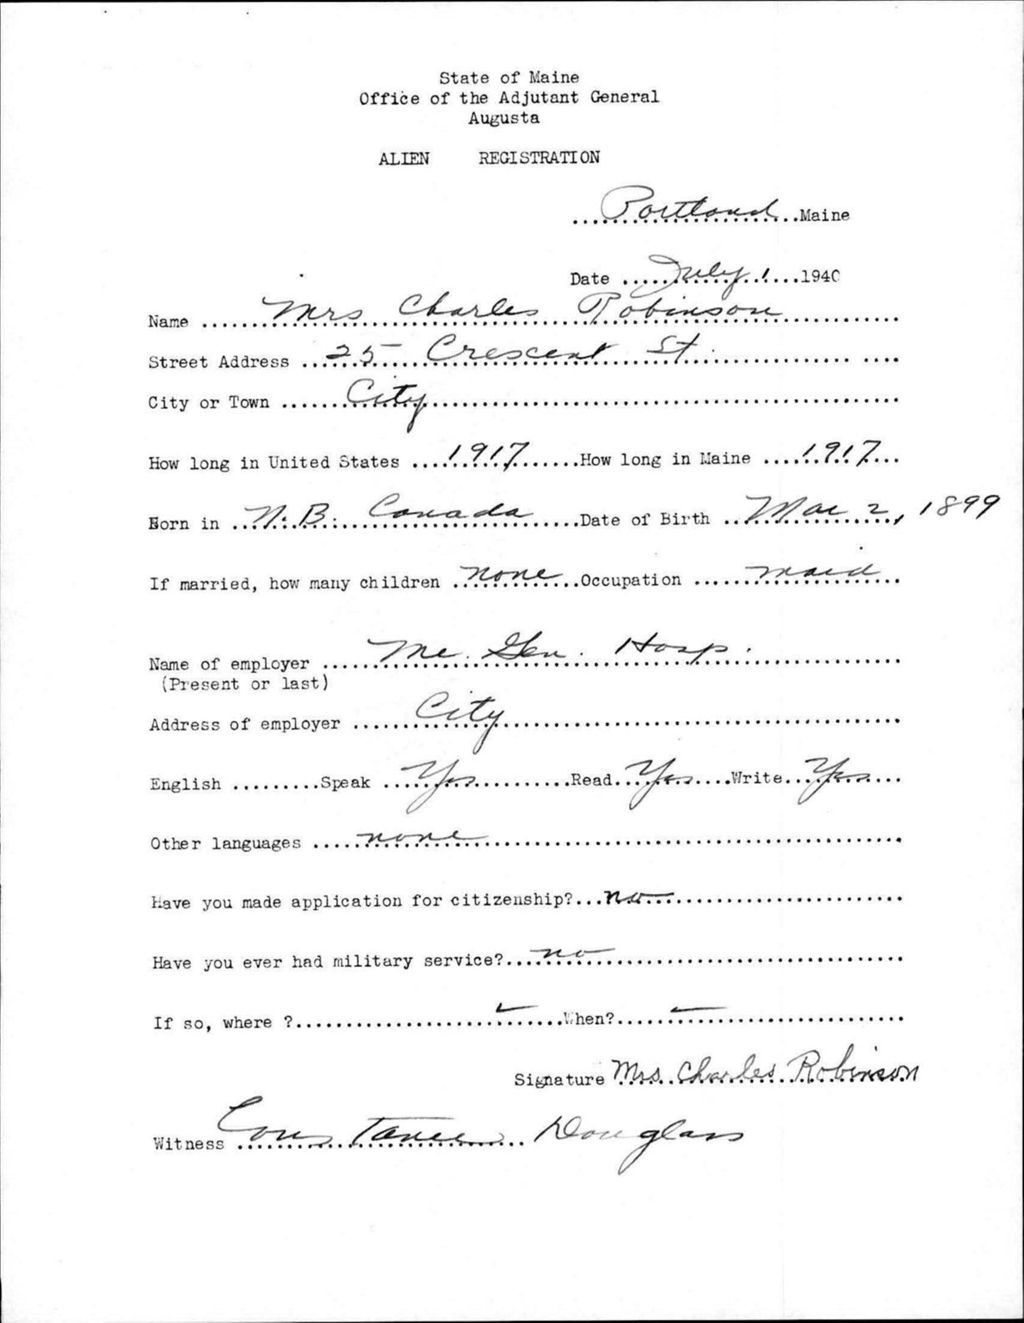 State of Maine
Office of the Adjutant General
Augusta
ALIEN REGISTRATION
Portland Maine
Date July 1 1940
Name Mrs Charles Robinson
Street Address 25 Crescent St.
City or Town City
How long in United States 1917 How long in Maine 1917
Born in N.B. Canada Date of Birth Mar 2, 1899
If married, how many children none Occupation maid
Name of employer Me. Gen. Hosp.
(Present or last)
Address of employer City
English Speak Yes Read Yes Write Yes
Other languages none
Have you made application for citizenship? no
Have you ever had military service? no
If so, where ? When?
Signature Mrs. Charles Robinson
Witness Constance Douglass